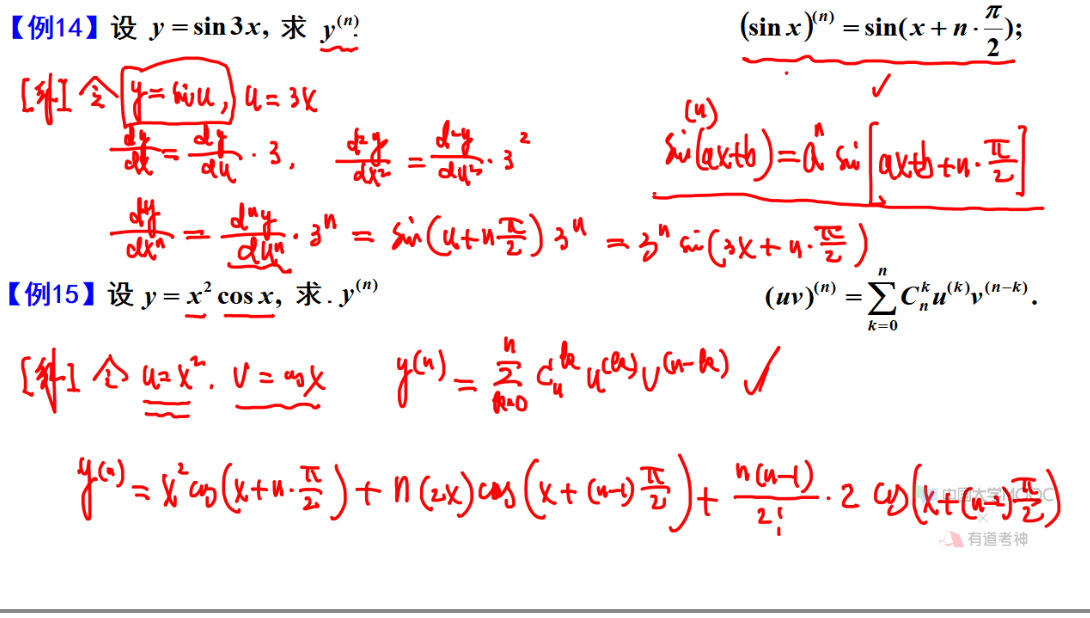 【例14】设 y = sin 3x, 求 y⁽ⁿ⁾. (sin x)⁽ⁿ⁾ = sin(x + n · π/2);
[解] 令 y = sin u, u = 3x
sin⁽ⁿ⁾(ax+b) = aⁿ sin[ax+b+n·π/2]
dy/dx = dy/du · 3, d²y/dx² = d²y/du² · 3²
dy/dxⁿ = dⁿy/duⁿ · 3ⁿ = sin(u+nπ/2) 3ⁿ = 3ⁿ sin(3x+n·π/2)
【例15】设 y = x² cos x, 求. y⁽ⁿ⁾ (uv)⁽ⁿ⁾ = ∑ₖ₌₀ⁿ Cₙᵏ u⁽ᵏ⁾ v⁽ⁿ⁻ᵏ⁾.
[解] 令 u = x². v = cos x y⁽ⁿ⁾ = ∑ₖ₌₀ⁿ Cₙᵏ u⁽ᵏ⁾ v⁽ⁿ⁻ᵏ⁾ ✓
y⁽ⁿ⁾ = x² cos(x+n·π/2) + n(2x) cos(x+(n-1)π/2) + n(n-1)/2! · 2 cos(x+(n-2)π/2)
中国大学MOOC
×
有道考神